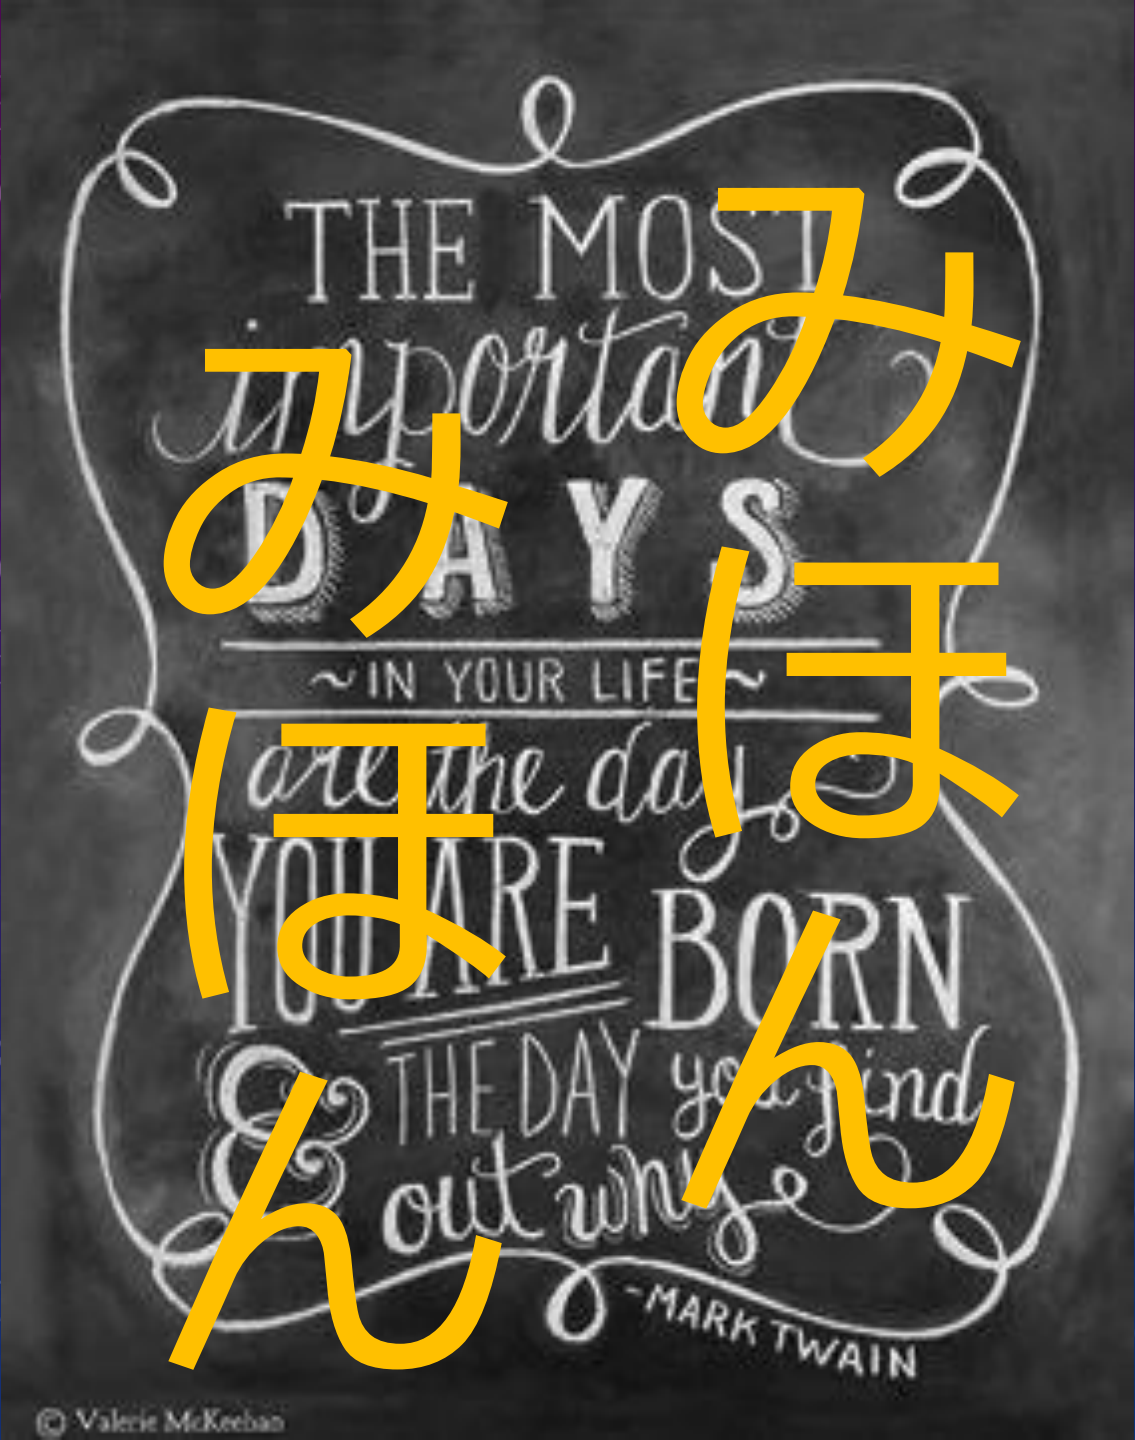 THE MOST
important
DAYS
~IN YOUR LIFE~
are the day
YOU ARE BORN
& THE DAY you find
out why
-MARK TWAIN
© Valerie McKeehan
みほん
みほん